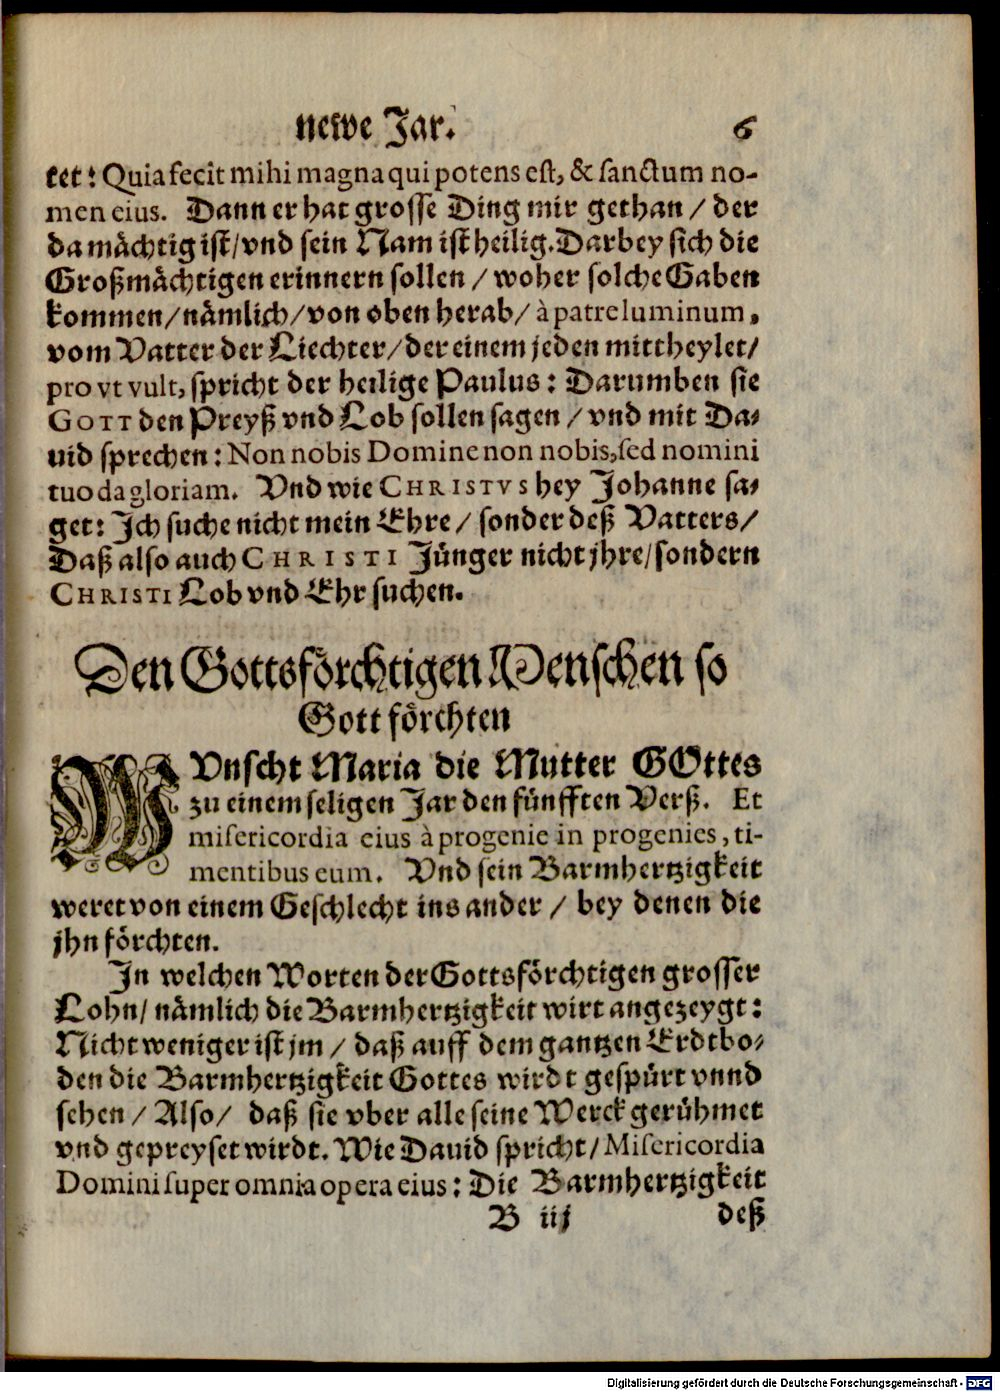 newe Jar. 6
ket: Quia fecit mihi magna qui potens est, & sanctum no-
men eius. Dann er hat grosse Ding mir gethan / der
da mächtig ist/ vnd sein Nam ist heilig. Darbey sich die
Großmächtigen erinnern sollen / woher solche Gaben
kommen/ nämlich/ von oben herab/ à patre luminum,
vom Vatter der Liechter/ der einem jeden mittheylet/
pro vt vult, spricht der heilige Paulus: Darumben sie
GOTT den Preyß vnd Lob sollen sagen / vnd mit Da-
uid sprechen: Non nobis Domine non nobis, sed nomini
tuo da gloriam. Vnd wie CHRISTVS hey Johanne sa-
get: Ich suche nicht mein Ehre / sonder deß Vatters/
Daß also auch CHRISTI Jünger nicht jhre/ sondern
CHRISTI Lob vnd Ehr suchen.
Den Gottsförchtigen Menschen so
Gott förchten
WVnscht Maria die Mutter GOttes
zu einem seligen Jar den fünfften Verß. Et
misericordia eius à progenie in progenies, ti-
mentibus eum. Vnd sein Barmhertzigkeit
weret von einem Geschlecht ins ander / bey denen die
jhn förchten.
In welchen Worten der Gottsförchtigen grosser
Lohn/ nämlich die Barmhertzigkeit wirt angezeygt:
Nicht weniger ist jm / daß auff dem gantzen Erdtbo-
den die Barmhertzigkeit Gottes wirdt gespürt vnnd
sehen / Also/ daß sie vber alle seine Werck gerühmet
vnd gepreyset wirdt. Wie Dauid spricht/ Misericordia
Domini super omnia opera eius: Die Barmhertzigkeit
B iij deß
Digitalisierung gefördert durch die Deutsche Forschungsgemeinschaft - DFG